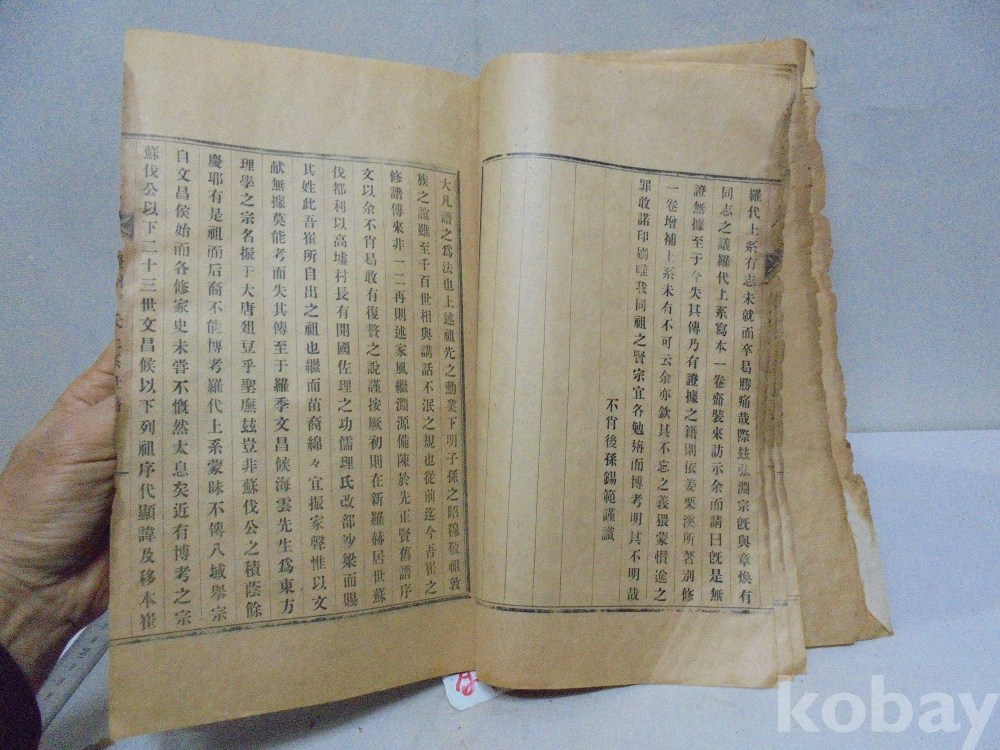 羅代上系有志未就而卒曷勝痛哉際玆弘淵宗旣與章煥有
同志之議羅代上系寫本一卷齎裝來訪示余而請曰旣是無
證無據至于今失其傳乃有證據之籍則依姜栗溪所著別修
一卷增補上系未有不可云余亦欽其不忘之義猥蒙僭逾之
罪敢諾印刷唯我同祖之賢宗宜各勉旃而博考明其不明哉
不肖後孫錫範謹識
大凡譜之爲法也上述祖先之勳業下明子孫之昭穆敬祖敦
族之誼雖至千百世相與講話不泯之規也從前迄今吾崔之
修譜傳來非一二再則述家風繼淵源備陳於先正賢舊譜序
文以余不肖曷敢有復贅之說謹按厥初則在新羅赫居世蘇
伐都利以高墟村長有開國佐理之功儒理氏改部沙梁而賜
其姓此吾崔所自出之祖也繼而苗裔綿々宜振家聲惟以文
献無據莫能考而失其傳至于羅季文昌候海雲先生爲東方
理學之宗名振于大唐俎豆乎聖廡玆豈非蘇伐公之積蔭餘
慶耶有是祖而后裔不能博考羅代上系蒙昧不傳八域擧宗
自文昌侯始而各修家史未甞不慨然太息矣近有博考之宗
蘇伐公以下二十三世文昌候以下列祖序代顯諱及移本崔
kobay